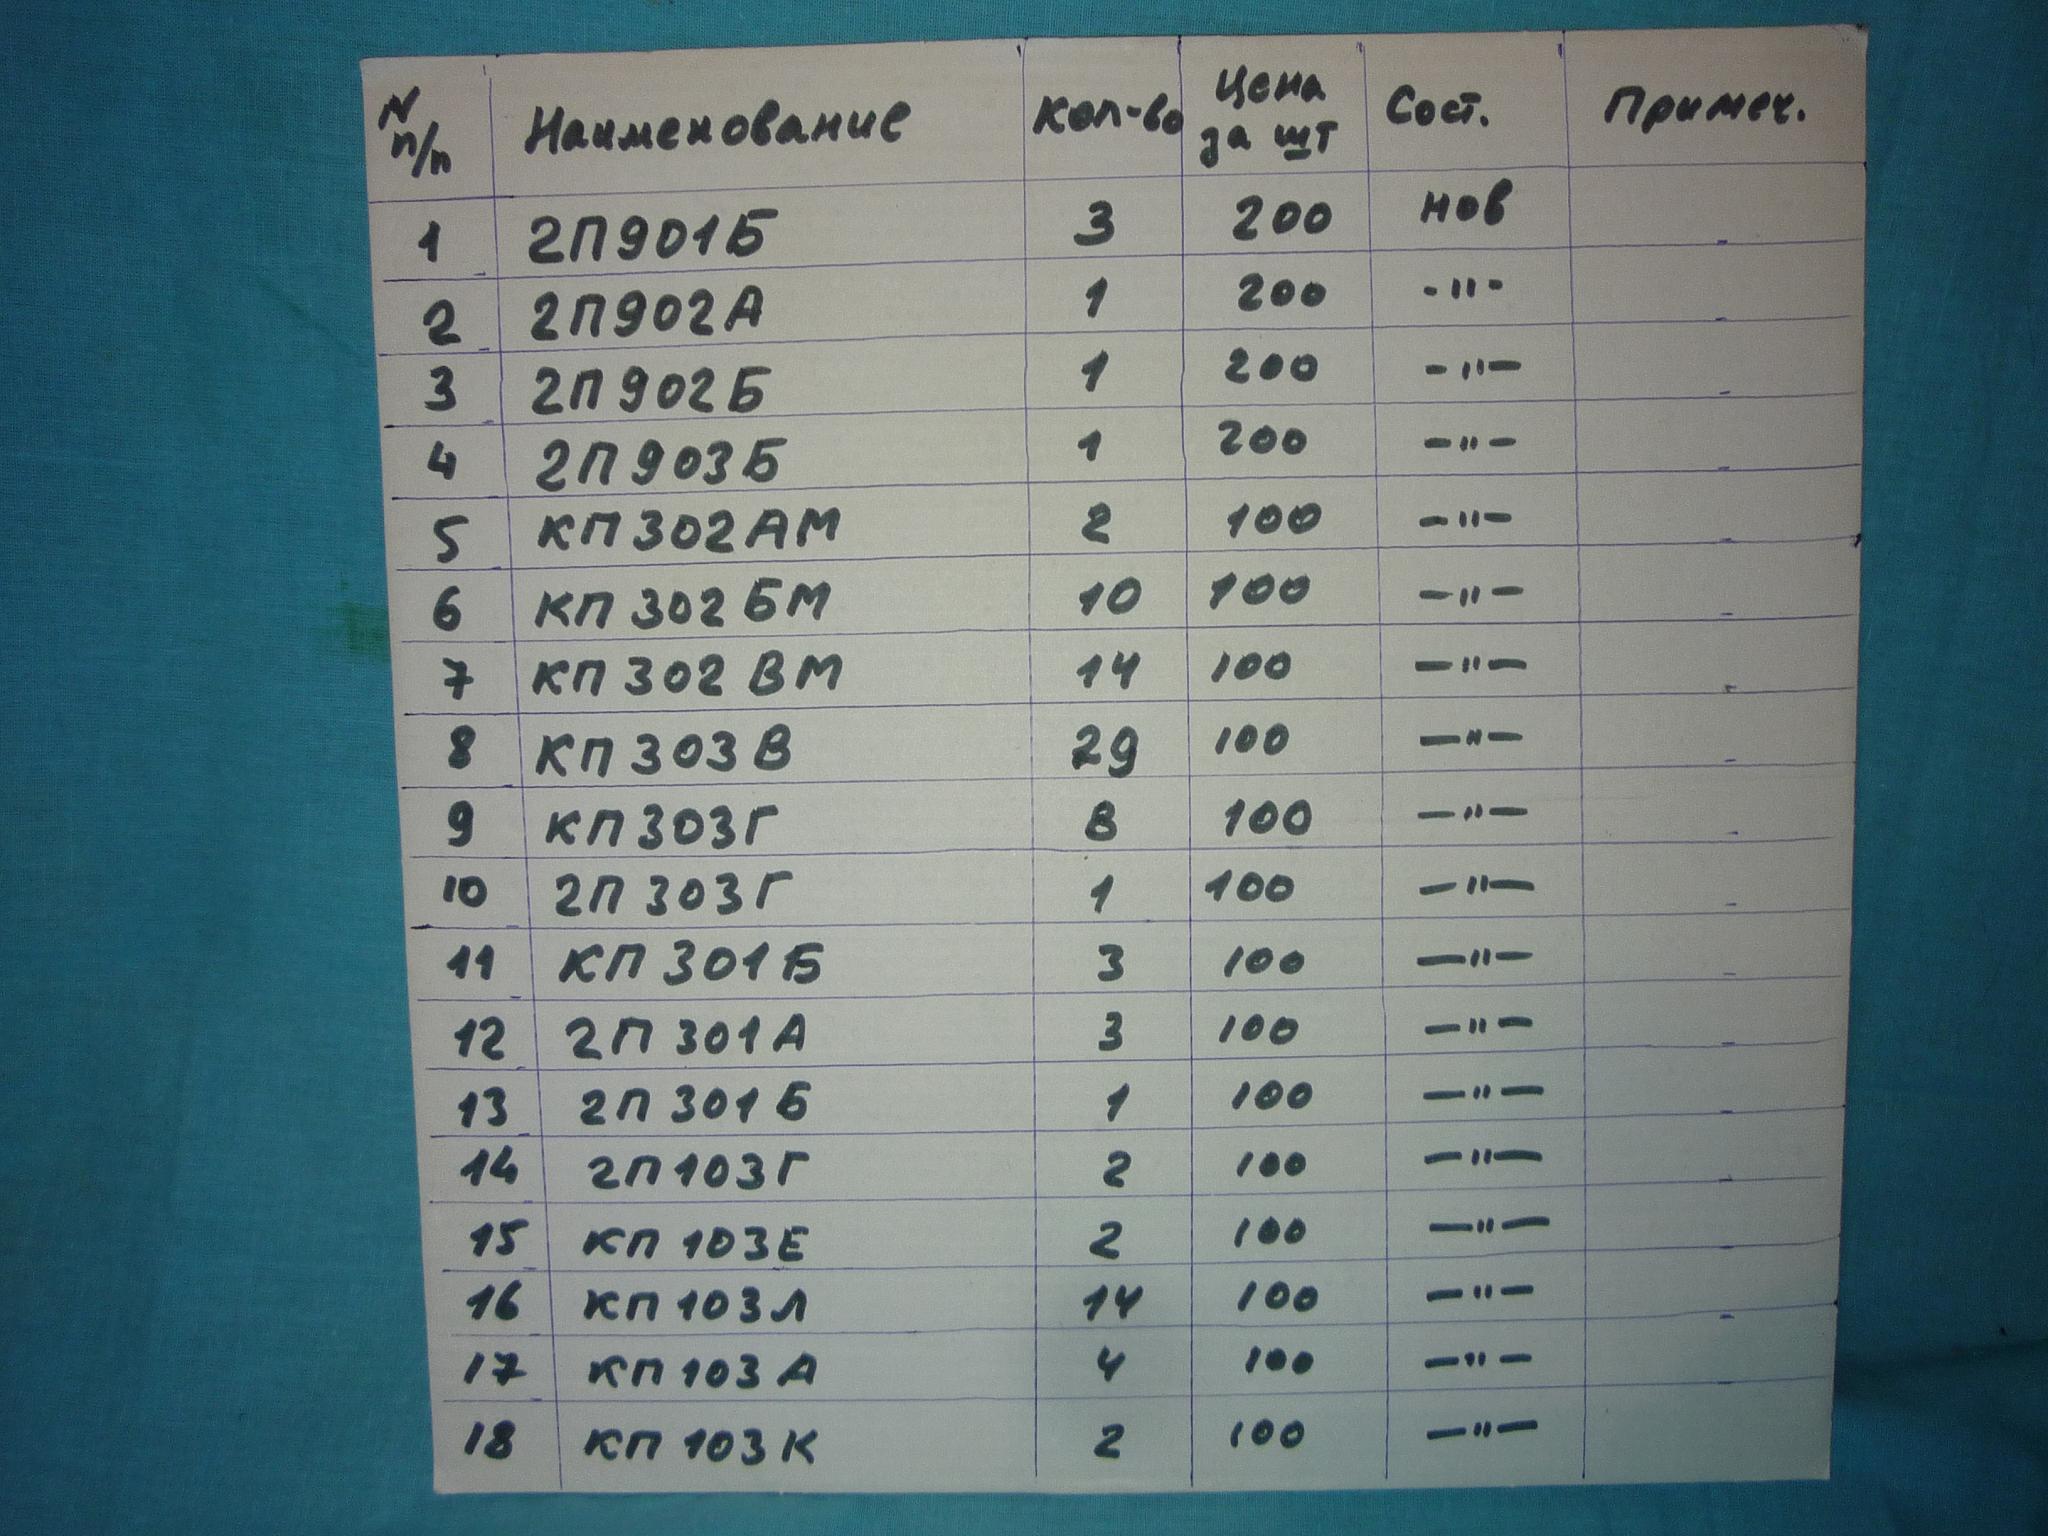 N п/п Наименование Кол-во Цена за шт Сост. Примеч.
1 2П901Б 3 200 нов
2 2П902А 1 200 -"-
3 2П902Б 1 200 -"-
4 2П903Б 1 200 -"-
5 КП302АМ 2 100 -"-
6 КП302БМ 10 100 -"-
7 КП302ВМ 14 100 -"-
8 КП303В 29 100 -"-
9 КП303Г 8 100 -"-
10 2П303Г 1 100 -"-
11 КП301Б 3 100 -"-
12 2П301А 3 100 -"-
13 2П301Б 1 100 -"-
14 2П103Г 2 100 -"-
15 КП103Е 2 100 -"-
16 КП103Л 14 100 -"-
17 КП103А 4 100 -"-
18 КП103К 2 100 -"-